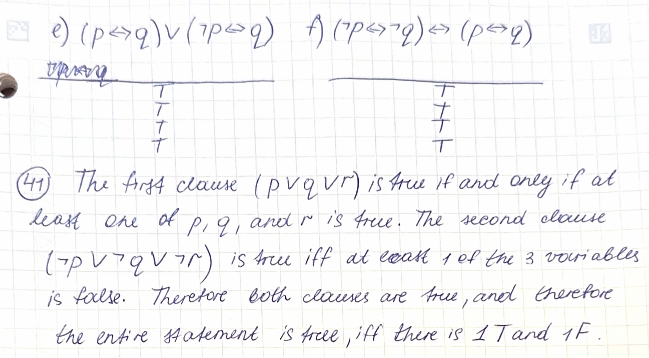 e) (p⇔q)∨(¬p⇔q) f) (¬p⇔¬q)⇔(p⇔q)
T T
T T
T T
T T
41 The first clause (p∨q∨r) is true if and only if at
least one of p, q, and r is true. The second clause
(¬p∨¬q∨¬r) is true iff at least 1 of the 3 variables
is false. Therefore both clauses are true, and therefore
the entire statement is true, iff there is 1 T and 1 F.